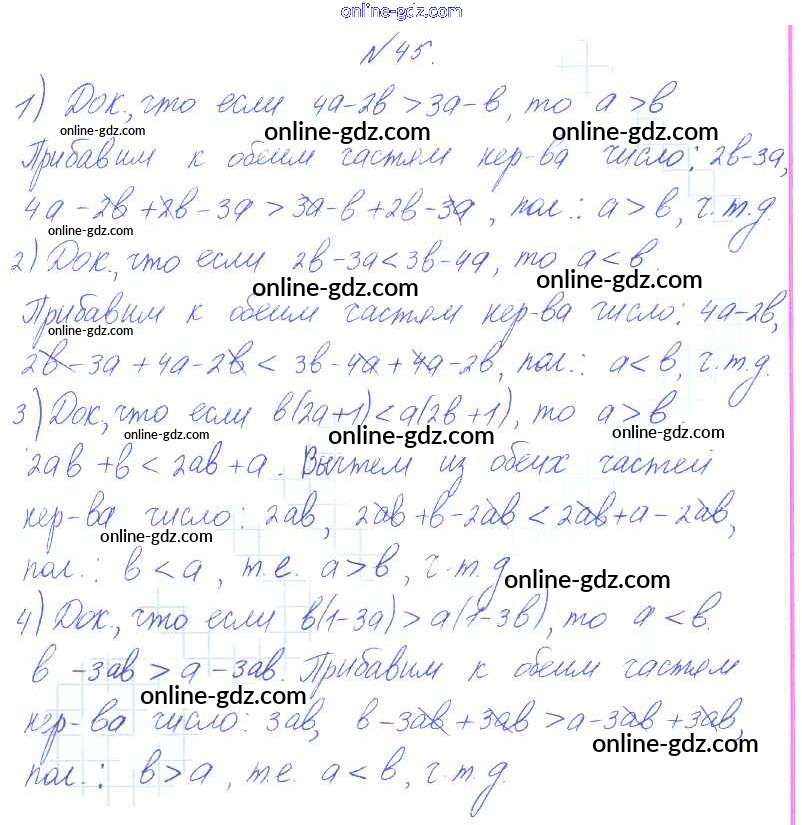 online-gdz.com
№ 45.
1) Док., что если 4a-2b > 3a-b, то a > b
online-gdz.com online-gdz.com online-gdz.com
Прибавим к обеим частям нер-ва число: 2b-3a,
4a-2b+2b-3a > 3a-b+2b-3a, пол.: a > b, ч.т.д.
online-gdz.com
2) Док., что если 2b-3a < 3b-4a, то a < b.
online-gdz.com online-gdz.com
Прибавим к обеим частям нер-ва число: 4a-2b,
online-gdz.com
2b-3a+4a-2b < 3b-4a+4a-2b, пол.: a < b, ч.т.д.
3) Док., что если b(2a+1) < a(2b+1), то a > b
online-gdz.com online-gdz.com online-gdz.com
2ab+b < 2ab+a. Вычтем из обеих частей
нер-ва число: 2ab, 2ab+b-2ab < 2ab+a-2ab,
online-gdz.com
пол.: b < a, т.е. a > b, ч.т.д.
online-gdz.com
4) Док., что если b(1-3a) > a(1-3b), то a < b.
b-3ab > a-3ab. Прибавим к обеим частям
online-gdz.com
нер-ва число: 3ab, b-3ab+3ab > a-3ab+3ab,
online-gdz.com
пол.: b > a, т.е. a < b, ч.т.д.